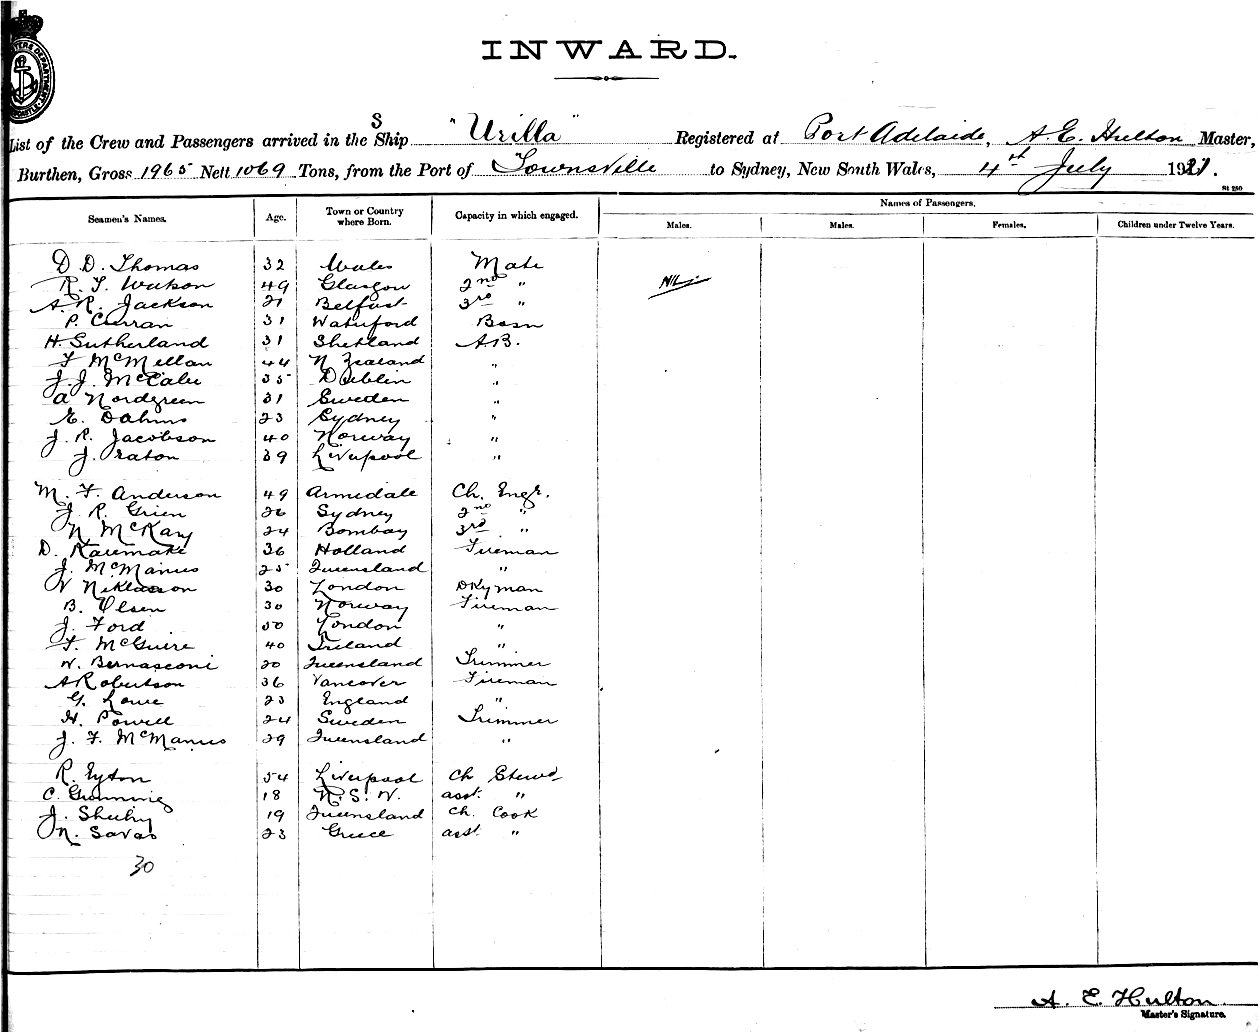 INWARD.
List of the Crew and Passengers arrived in the S Ship "Urilla" Registered at Port Adelaide, A. E. Hulton Master,
Burthen, Gross 1965 Nett 1069 Tons, from the Port of Townsville to Sydney, New South Wales, 4th July 1921.
St 250
Seamen's Names. Age. Town or Country where Born. Capacity in which engaged. Names of Passengers.
Males. Males. Females. Children under Twelve Years.
D. D. Thomas 32 Wales Mate
R. T. Watson 49 Glasgow 2nd " NIL
A. R. Jackson 21 Belfast 3rd "
P. Curran 31 Waterford Bosn
H. Sutherland 31 Shetland A.B.
F McMellan 44 N Zealand "
J. J. McCabe 35 Dublin "
A Nordgreen 31 Sweden "
E. Dahms 23 Sydney "
J. R. Jacobson 40 Norway "
J. 39 Liverpool "
M. F. Anderson 49 Armidale Ch. Engr.
J. R. Grien 26 Sydney 2nd "
N McKay 24 Bombay 3rd "
D. 36 Holland Fireman
J. McManus 25 Queensland "
N Niklasson 30 London Dkyman
B. Olsen 30 Norway Fireman
J. Ford 50 London "
F. McGuire 40 Ireland "
W. Bernasconi 20 Queensland Trimmer
A Robertson 36 Vancover Fireman
G. Lowe 23 England "
H. Powell 24 Sweden Trimmer
J. F. McManus 29 Queensland "
R. Eyton 54 Liverpool Ch Stewd
C. 18 N. S. W. asst. "
J. Sheehy 19 Queensland Ch. Cook
N. Savas 23 Greece asst "
30
A. E. Hulton
Master's Signature.